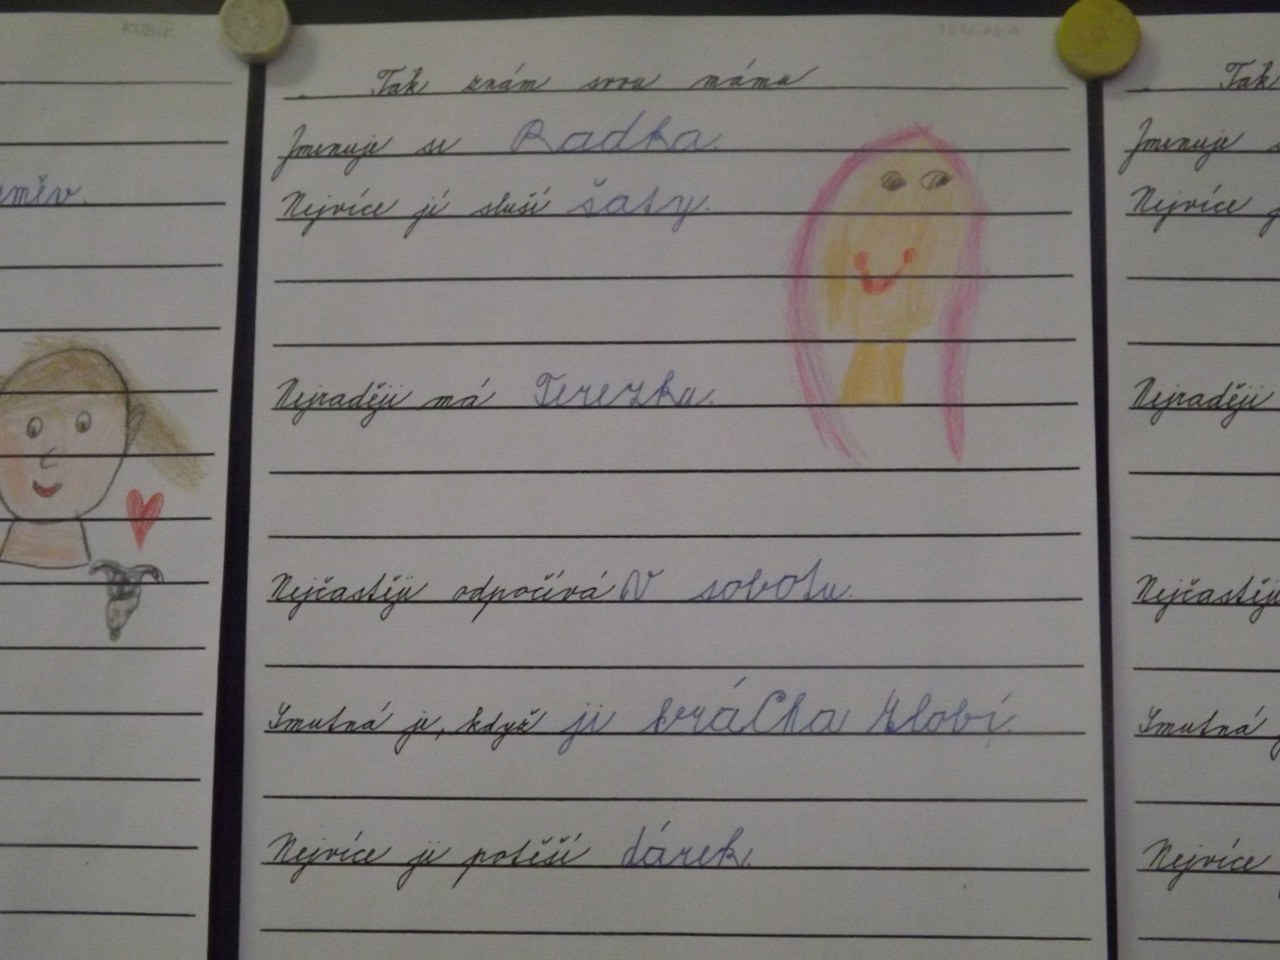 KUBÍK
TEREZKA
Tak znám svou mámu
Tak
Jmenuje se Radka.
Jmenuje
úměv.
Nejvíce jí sluší šaty.
Nejvíce
Nejraději má Terezku.
Nejraději
Nejčastěji odpočívá V sobotu.
Nejčastěji
Smutná je, když ji bráCha zlobí.
Smutná
Nejvíce ji potěší dárek.
Nejvíce